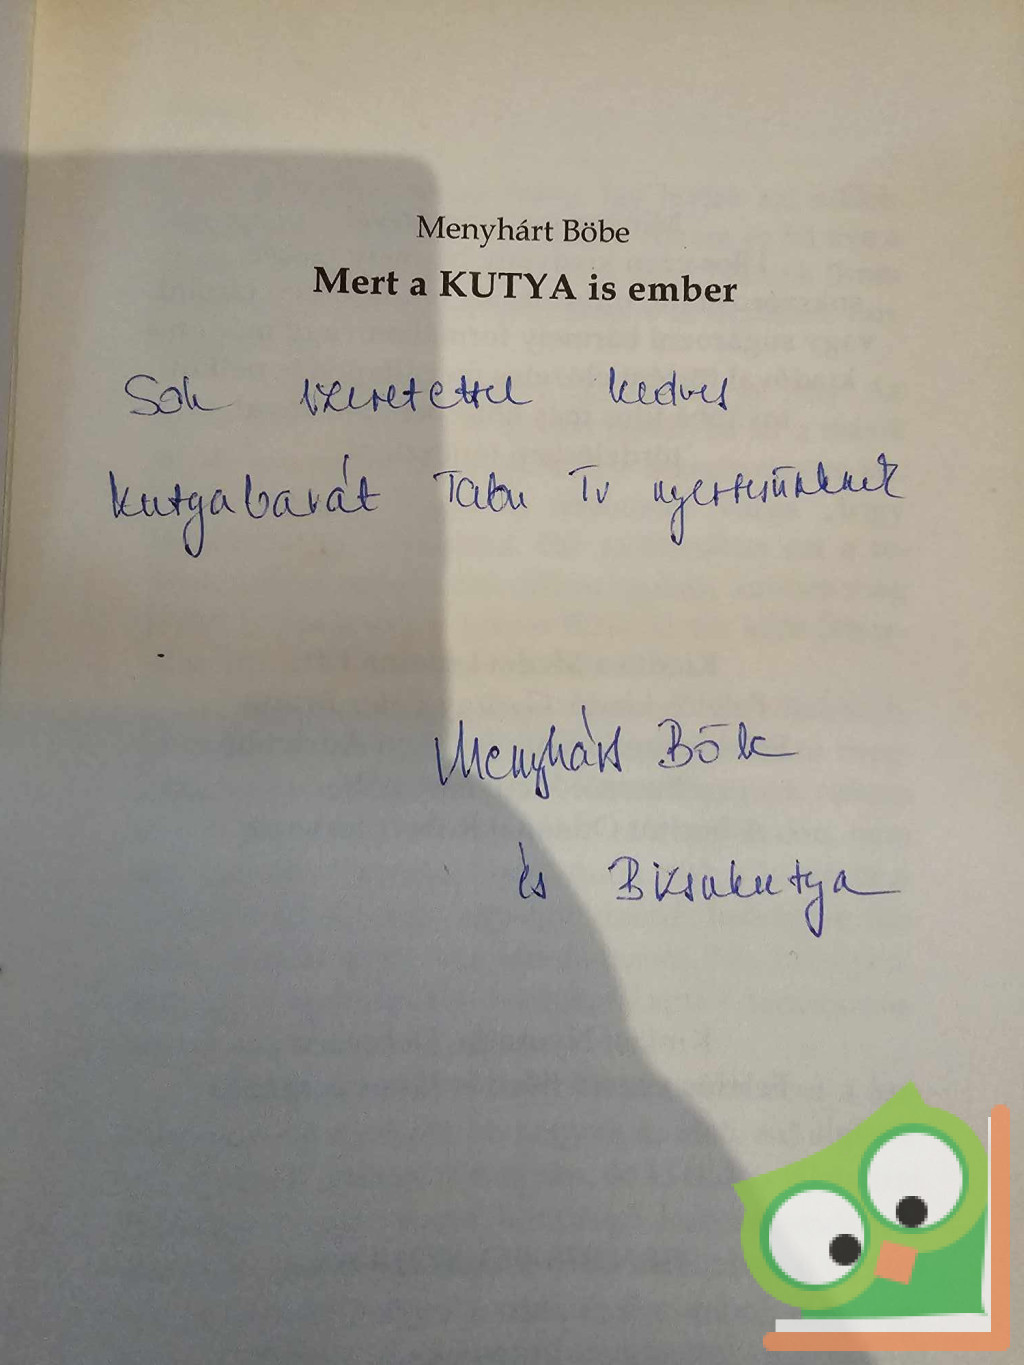 Menyhárt Böbe
Mert a KUTYA is ember
Sok szeretettel kedves
kutyabarát Tabu Tv nyertesünknek
Menyhárt Böbe
és Bizsukutya